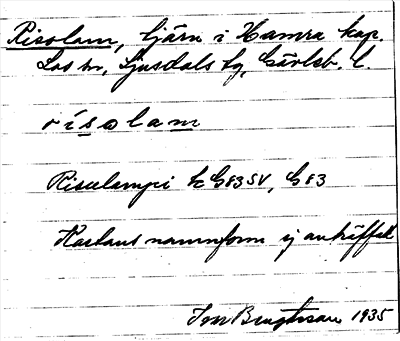 Risolam, tjärn i Hamra kap.
Los sn, Ljusdals tg, Gävleb. l.
risolam
Risulampi k G83SV, G83
Kartans namnform ej anträffad
Bengtsson 1935